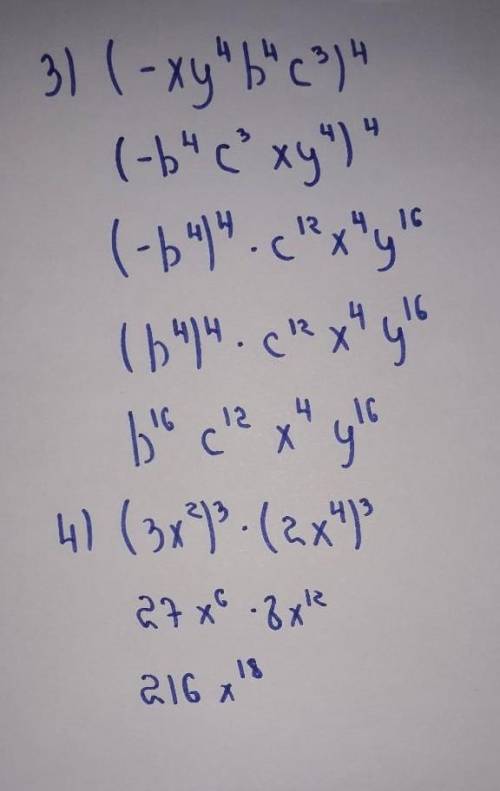 3) (-xy⁴b⁴c³)⁴
(-b⁴c³xy⁴)⁴
(-b⁴)⁴·c¹²x⁴y¹⁶
(b⁴)⁴·c¹²x⁴y¹⁶
b¹⁶c¹²x⁴y¹⁶
4) (3x²)³·(2x⁴)³
27x⁶·8x¹²
216x¹⁸